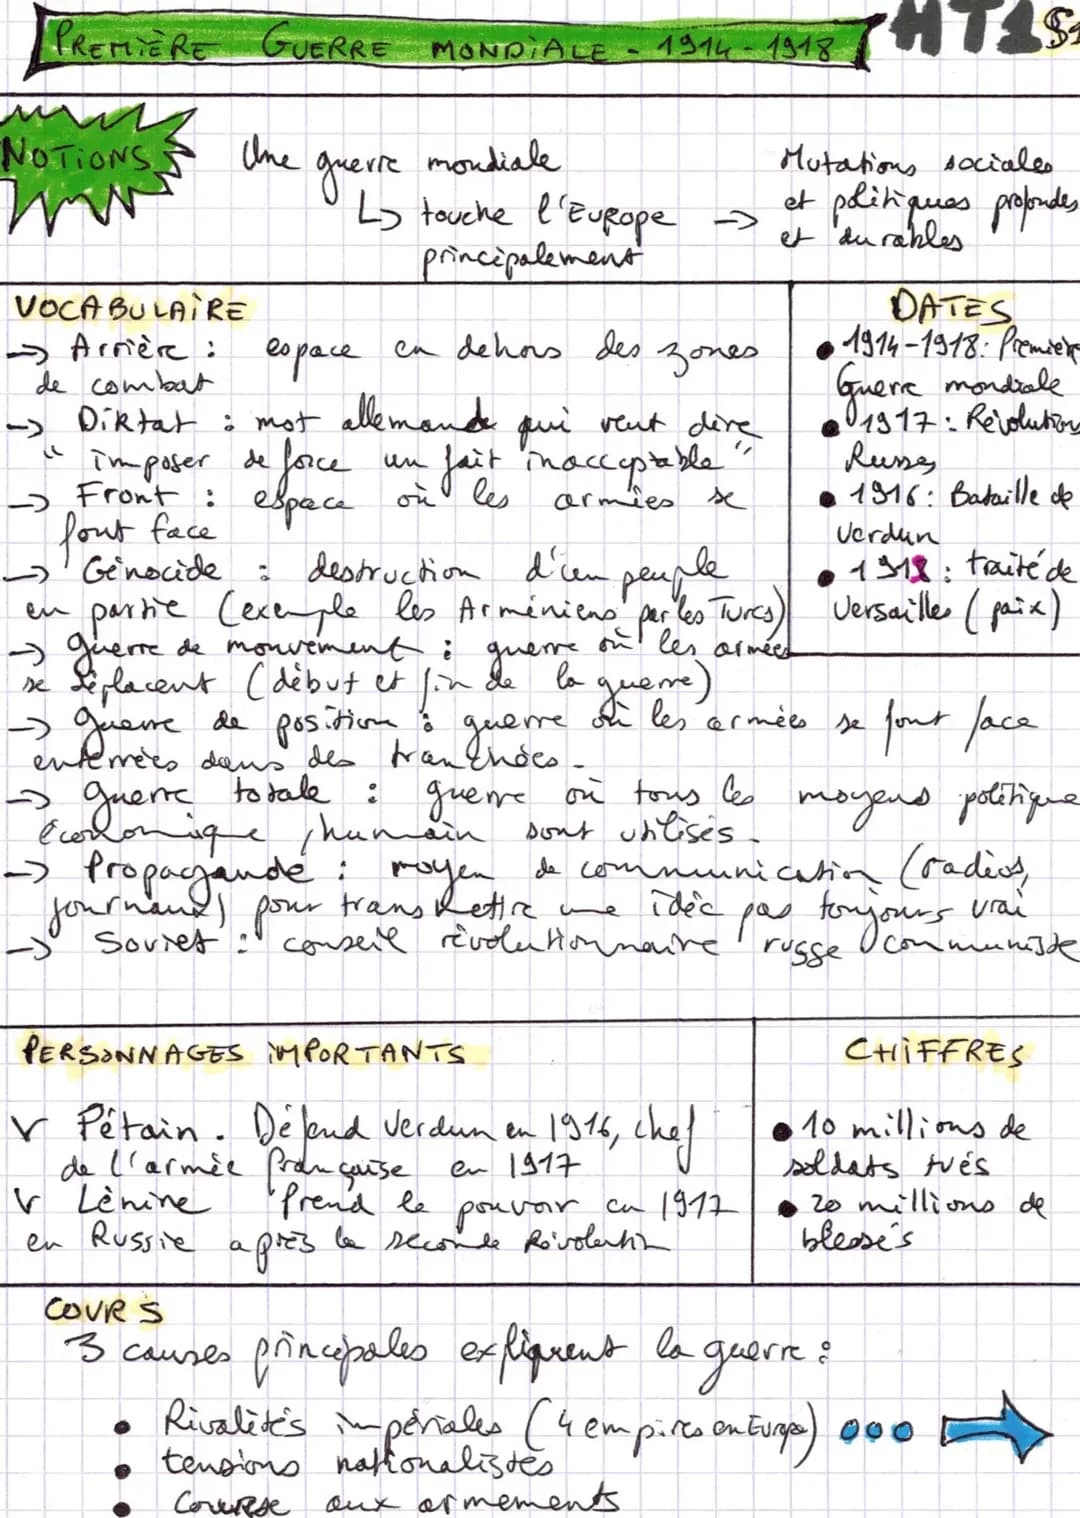 PREMIÈRE GUERRE MONDIALE - 1914 - 1918
HT1 S1
NOTIONS
Une guerre mondiale
↳ touche l'Europe
principalement
→
Mutations sociales
et politiques profondes
et durables
VOCABULAIRE
→ Arrière : espace en dehors des zones
de combat
→ Diktat : mot allemande qui veut dire
" imposer de force un fait inacceptable "
→ Front : espace où les armées se
font face
→ Génocide : destruction d'un peuple
en partie (exemple les Arméniens par les Turcs)
→ guerre de mouvement : guerre où les armées
se déplacent (début et fin de la guerre)
→ guerre de position : guerre où les armées se font face
enterrées dans des tranchées.
→ guerre totale : guerre où tous les moyens politique
économique, humain sont utilisés.
→ Propagande : moyen de communication (radios,
journaux) pour transmettre une idée pas toujours vrai
→ Soviet : conseil révolutionnaire russe communiste
DATES
• 1914-1918: Première
Guerre mondiale
• 1917 : Révolutions
Russes
• 1916 : Bataille de
Verdun
• 1918 : traité de
Versailles (paix)
PERSONNAGES IMPORTANTS
V Pétain. Défend Verdun en 1916, chef
de l'armée française en 1917
V Lénine Prend le pouvoir en 1917
en Russie après la seconde Révolution
CHIFFRES
• 10 millions de
soldats tués
• 20 millions de
blessés
COURS
3 causes principales expliquent la guerre :
• Rivalités impériales (4 empires en Europe)
• tensions nationalistes
• Course aux armements